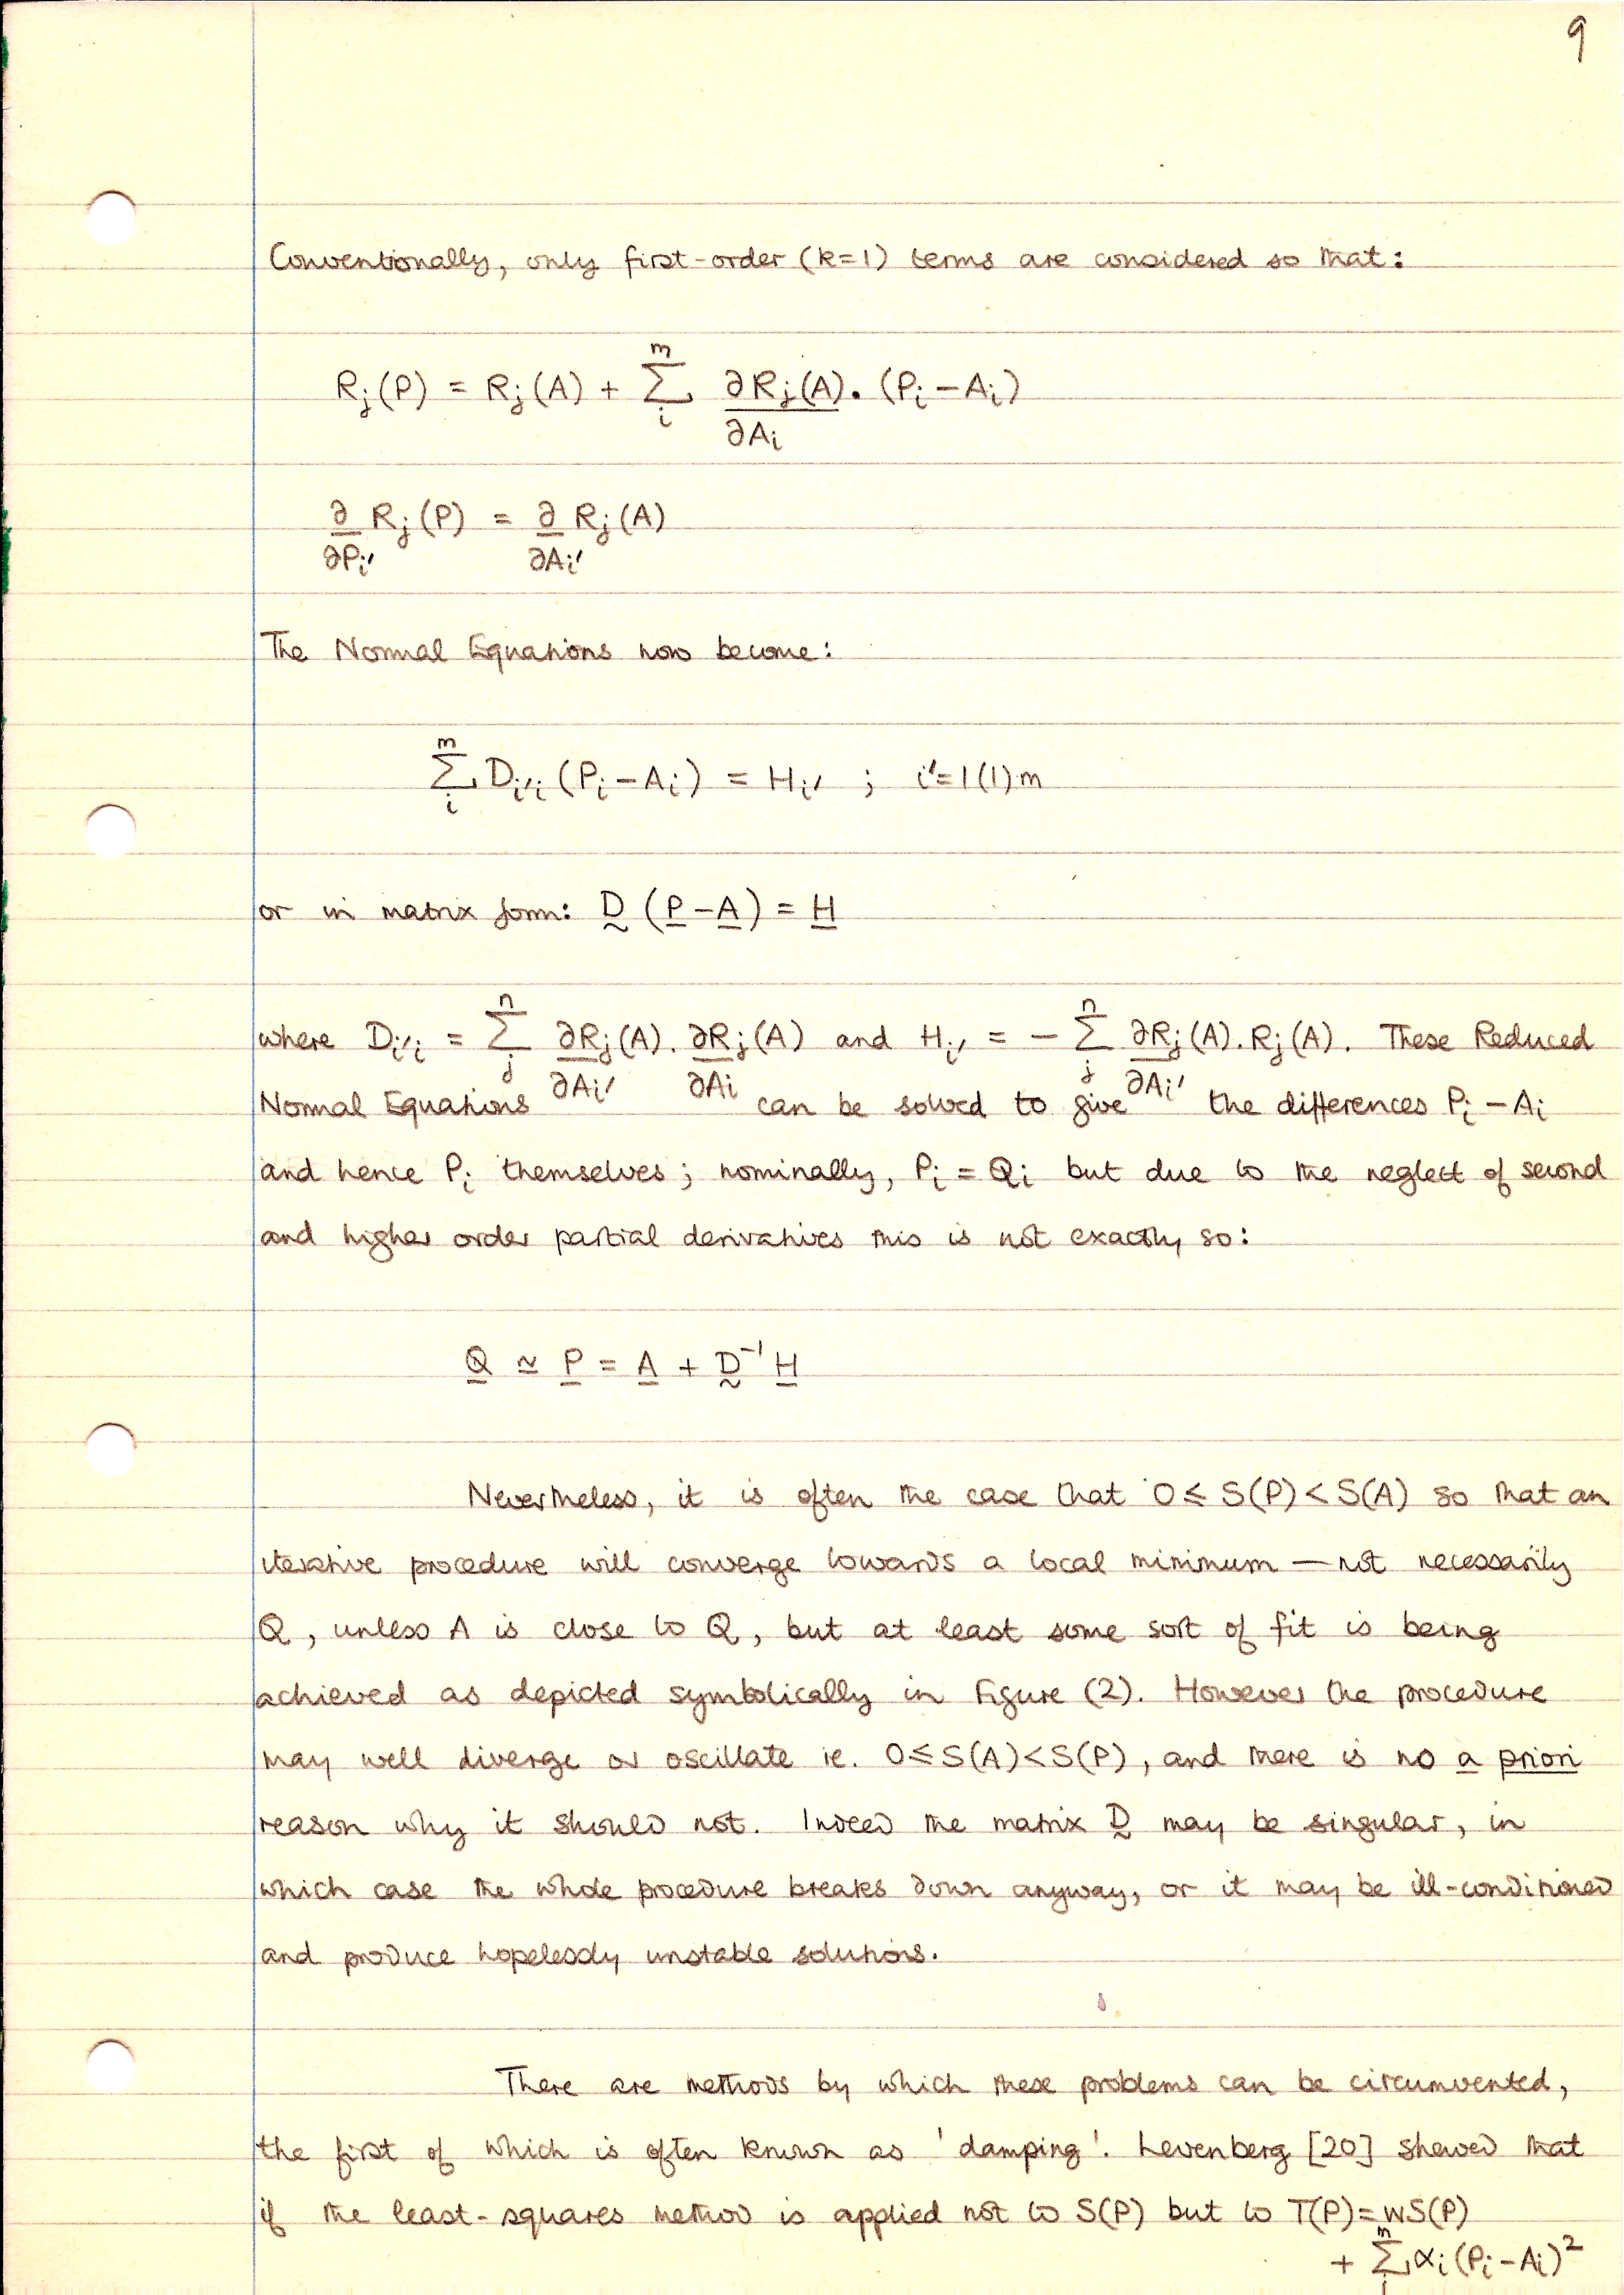 9
Conventionally, only first-order (k=1) terms are considered so that:
R_j(P) = R_j(A) + \sum_i^m \frac{∂R_j(A)}{∂A_i}. (P_i - A_i)
\frac{∂}{∂P_{i'}} R_j(P) = \frac{∂}{∂A_{i'}} R_j(A)
The Normal Equations now become:
\sum_i^m D_{i'i} (P_i - A_i) = H_{i'} ; i'=1(1)m
or in matrix form: D (P - A) = H
where D_{i'i} = \sum_j^n \frac{∂R_j}{∂A_{i'}}(A). \frac{∂R_j}{∂A_i}(A) and H_{i'} = - \sum_j^n \frac{∂R_j}{∂A_{i'}}(A). R_j(A). These Reduced
Normal Equations can be solved to give the differences P_i - A_i
and hence P_i themselves; nominally, P_i = Q_i but due to the neglect of second
and higher order partial derivatives this is not exactly so:
Q ≃ P = A + D^{-1} H
Nevertheless, it is often the case that 0 ≤ S(P) < S(A) so that an
iterative procedure will converge towards a local minimum — not necessarily
Q, unless A is close to Q, but at least some sort of fit is being
achieved as depicted symbolically in Figure (2). However the procedure
may well diverge or oscillate ie. 0 ≤ S(A) < S(P), and there is no a priori
reason why it should not. Indeed the matrix D may be singular, in
which case the whole procedure breaks down anyway, or it may be ill-conditioned
and produce hopelessly unstable solutions.
There are methods by which these problems can be circumvented,
the first of which is often known as 'damping'. Levenberg [20] shewed that
if the least-squares method is applied not to S(P) but to T(P)=wS(P)
+ \sum_i^m α_i (P_i - A_i)^2